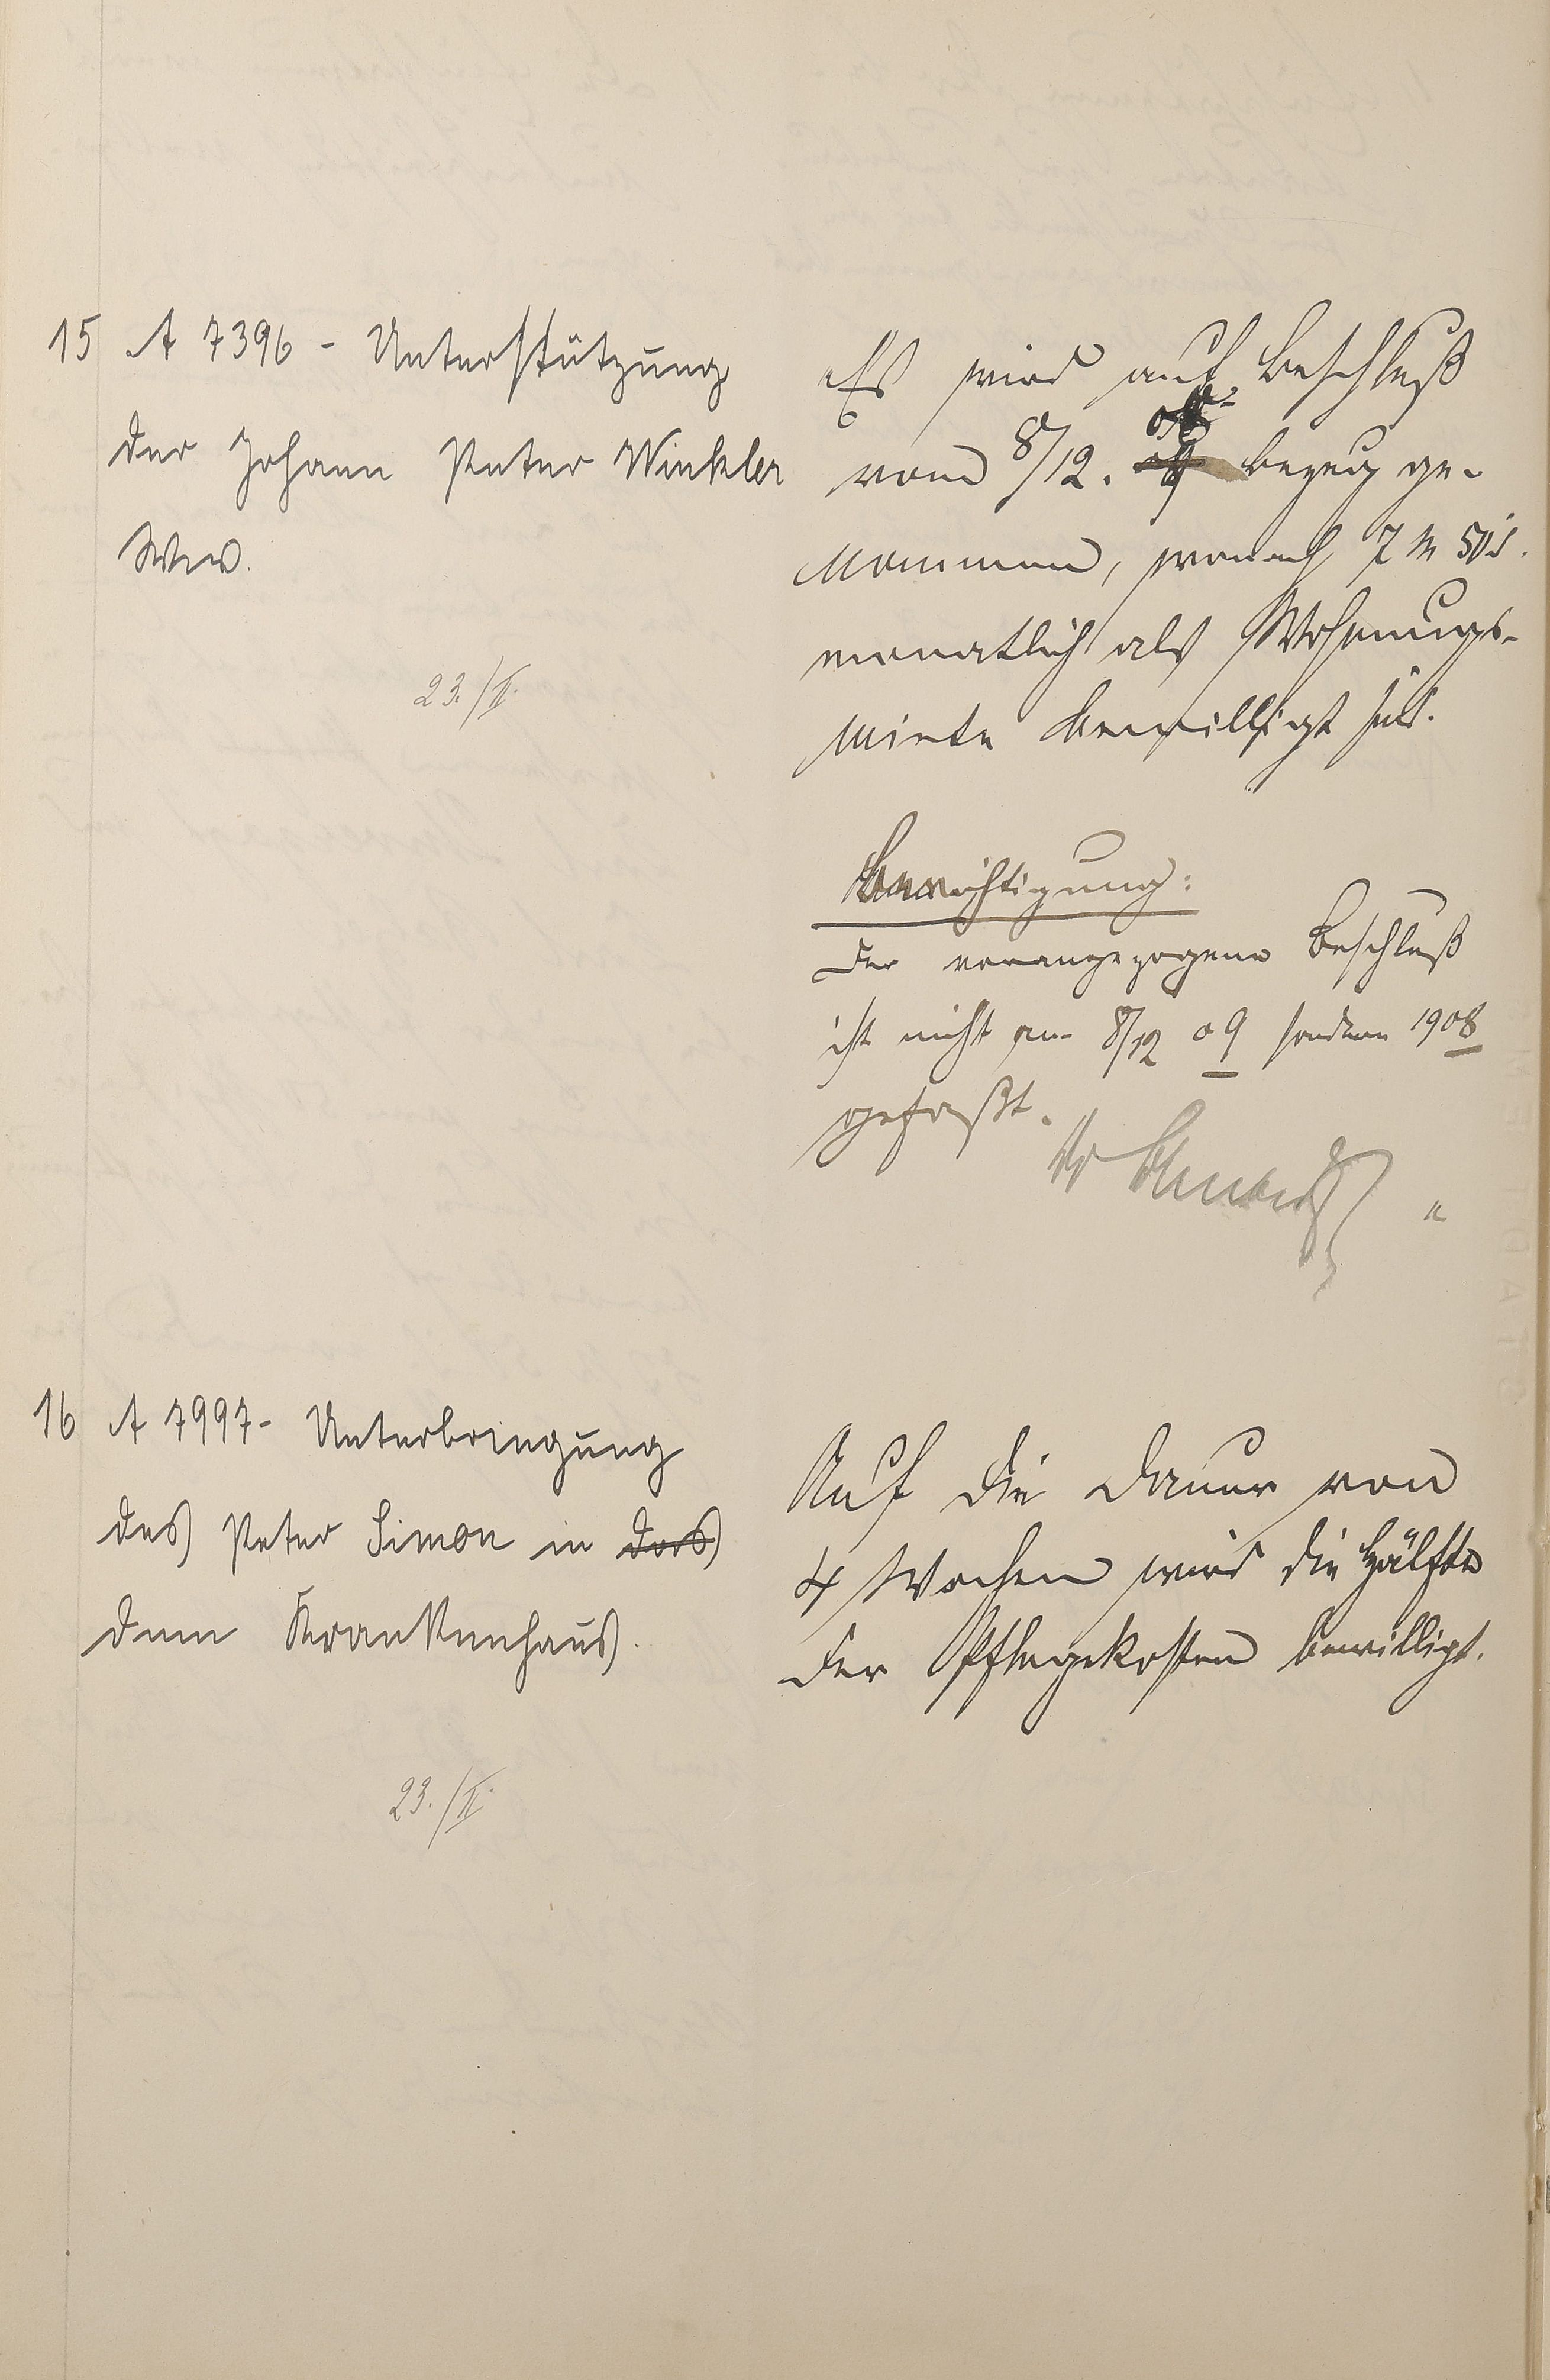 15 A 7396 - Unterstützung
der Johann Peter Winkler
Wwe.
23./II.
Es wird auf Beschluß
vom 8/12. 08 09 Bezug ge-
nommen, wonach 7 M 50 d.
monatlich als Wohnungs-
miete bewilligt sind.
Berichtigung:
Der vorangezogene Beschluß
ist nicht am 8/12 09 sondern 1908
gefaßt.
16 A 7997- Unterbringung
des Peter Simon in das
dem Krankenhaus.
23./II.
Auf die Dauer von
4 Wochen wird die Hälfte
der Pflegekosten bewilligt.